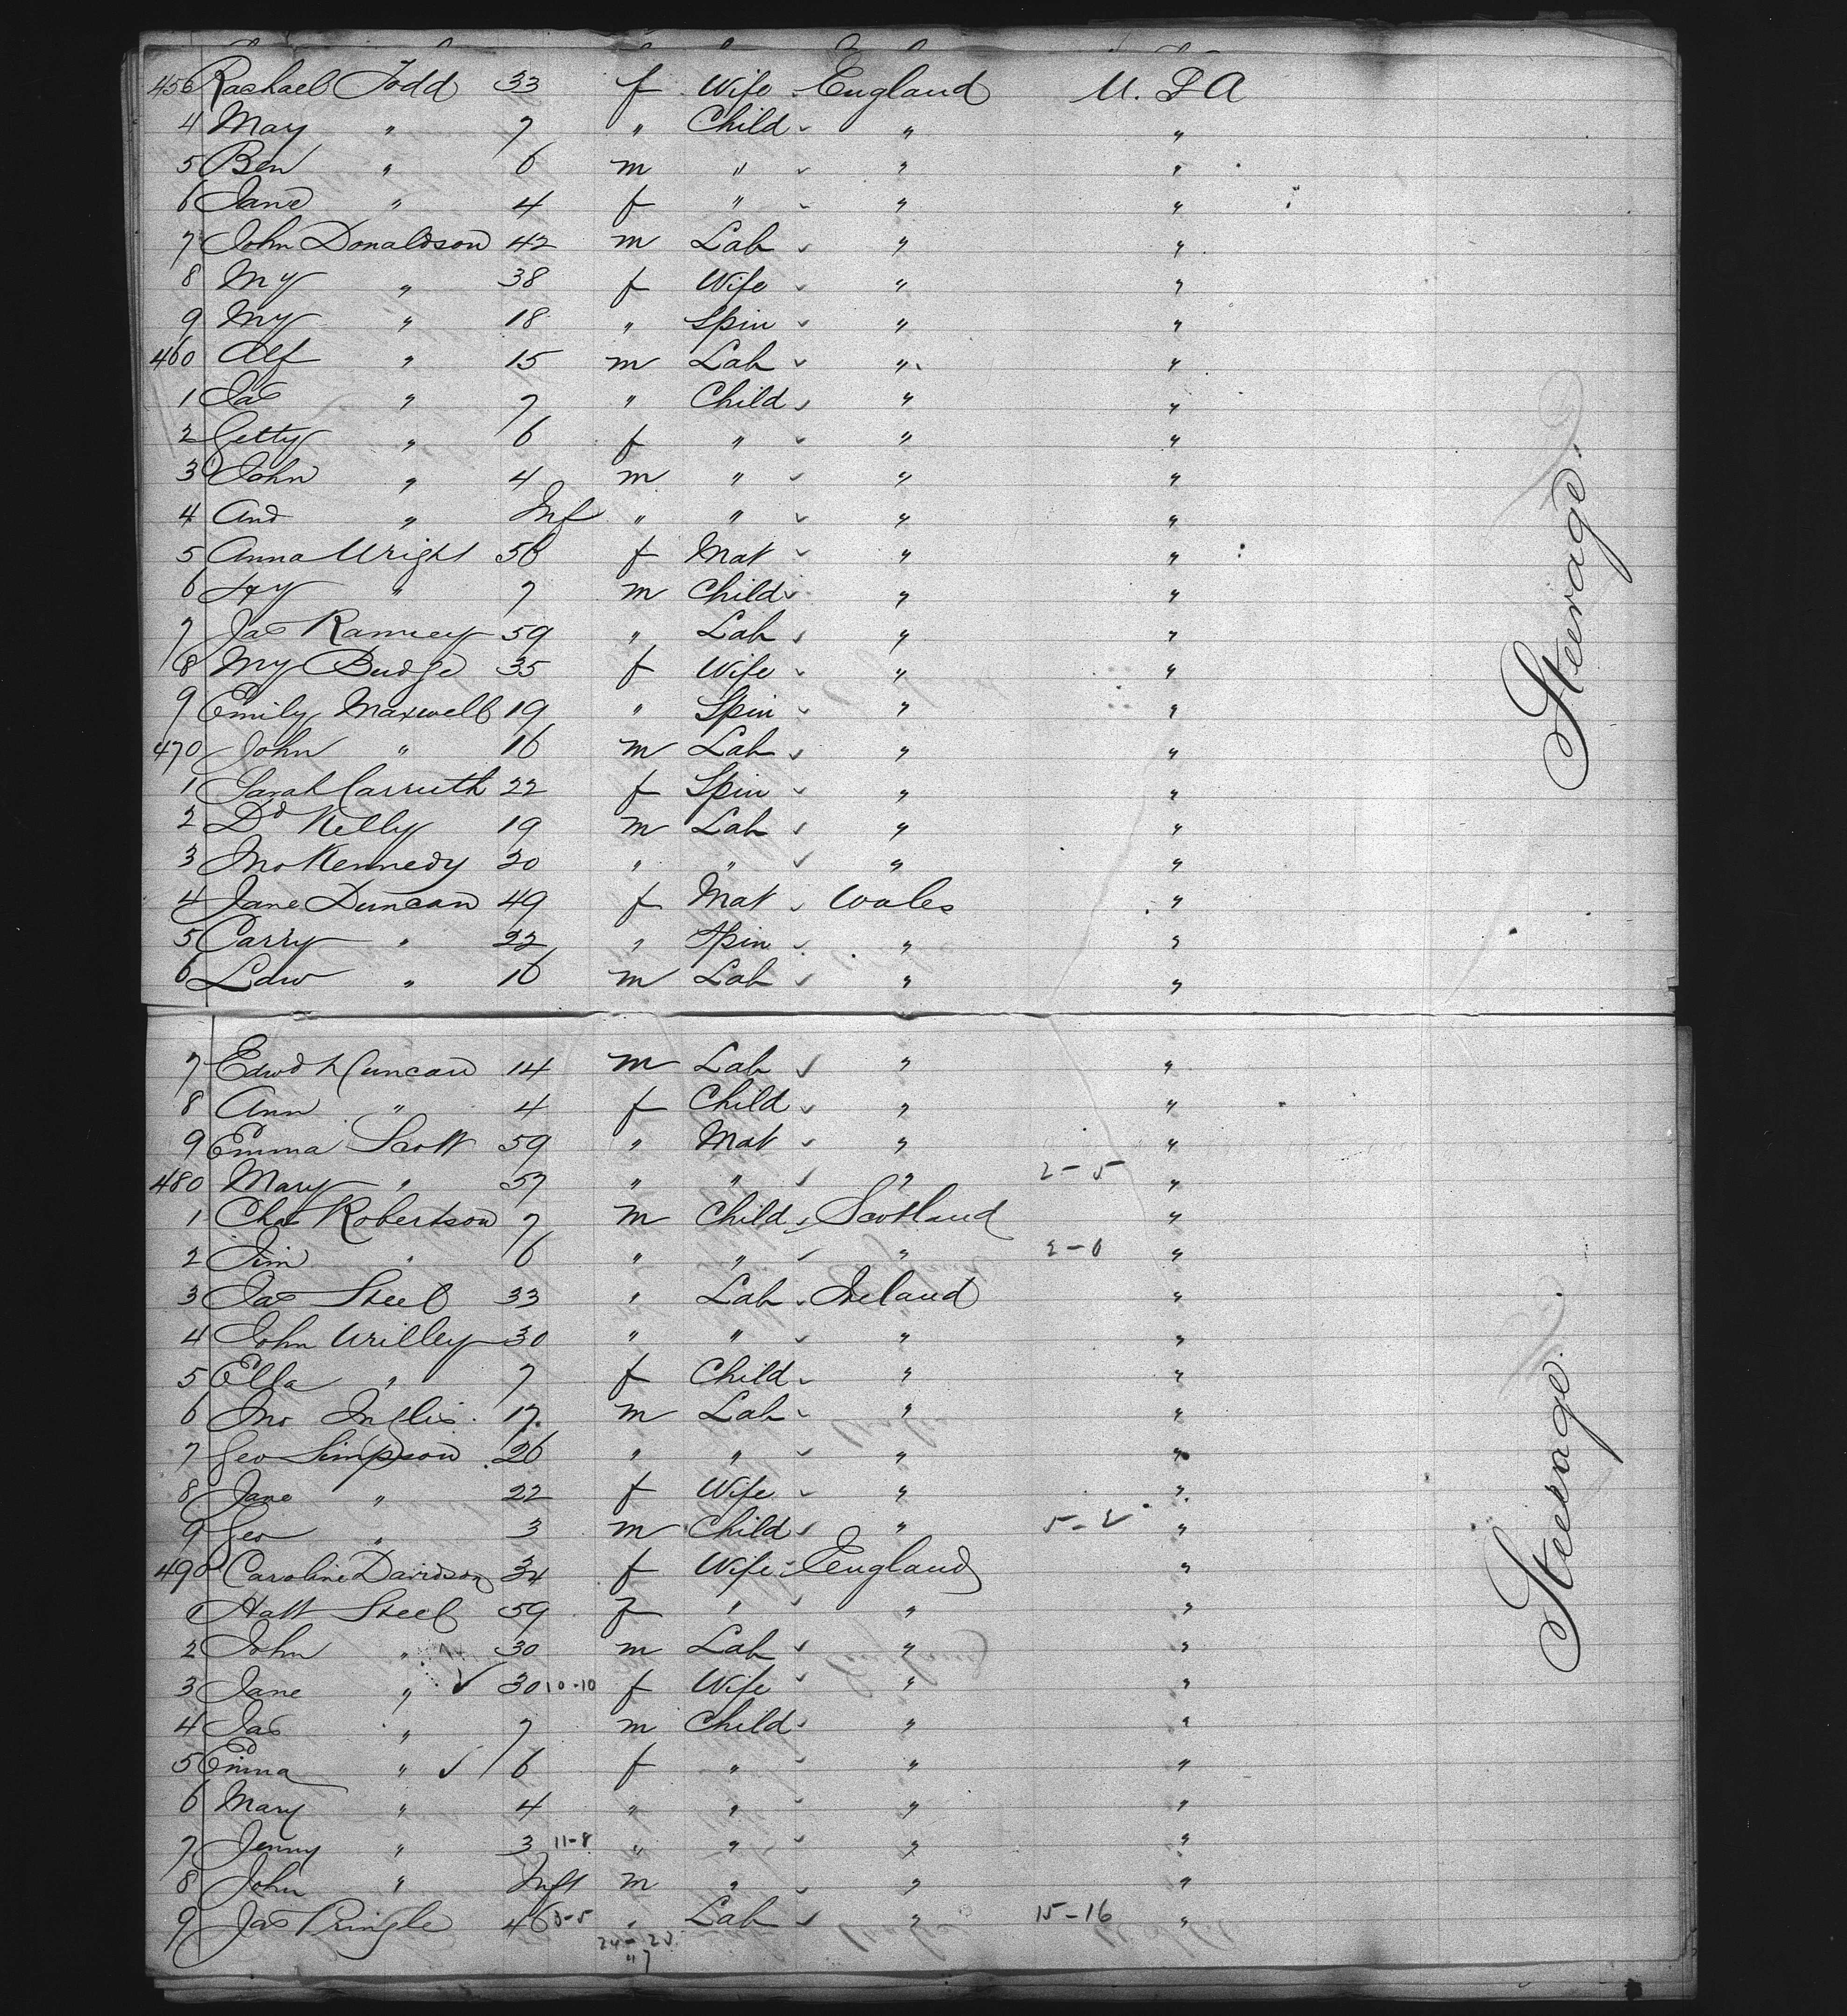 456 Rashael Todd 33 f Wife England U. S A
4 May " 7 " Child " "
5 Ben " 6 m " " "
6 Jane " 4 f " " "
7 John Donaldson 42 m Lab " "
8 My " 38 f Wife " "
9 My " 18 " Spin " "
460 Alf " 15 m Lab " "
1 Jas " 7 " Child " "
2 Getty " 6 f " " "
3 John " 4 m " " "
4 And " Inf " " " "
5 Anna Wright 56 f Mat " "
6 Hy " 7 m Child " "
7 Jas Ramsey 59 " Lab " "
8 My Budge 35 f Wife " "
9 Emily Maxwell 19 " Spin " "
470 John " 16 m Lab " "
1 Sarah Carruth 22 f Spin " "
2 Dd Kelly 19 m Lab " "
3 Jno Kennedy 20 " " " "
4 Jane Duncan 49 f Mat Wales "
5 Carry " 22 " Spin " "
6 Law " 16 m Lab " "
Steerage.
7 Edwd Duncan 14 m Lab " "
8 Ann " 4 f Child " "
9 Emma Scott 59 " Mat " "
480 Mary " 57 " " " 2-5 "
1 Chas Robertson 7 m Child Scotland "
2 Jim " 6 " " " 2-0 "
3 Jas Steel 33 " Lab Ireland "
4 John Wrilley 30 " " " "
5 Ella " 7 f Child " "
6 Jno Inglis 17 m Lab " "
7 Geo Simpson 26 " " " "
8 Jane " 22 f Wife " "
9 Geo " 3 m Child " 5-2 "
490 Caroline Davidson 34 f Wife England "
1 Hatt Steel 59 f " " "
2 John " 30 m Lab " "
3 Jane " 30 10-10 f Wife " "
4 Jas " 7 m Child " "
5 Emma " 6 f " " "
6 Mary " 4 " " " "
7 Jenny " 3 11-8 " " " "
8 John " Inft m " " "
9 Jas Pringle 46 3-5 " Lab " 15-16 "
Steerage.